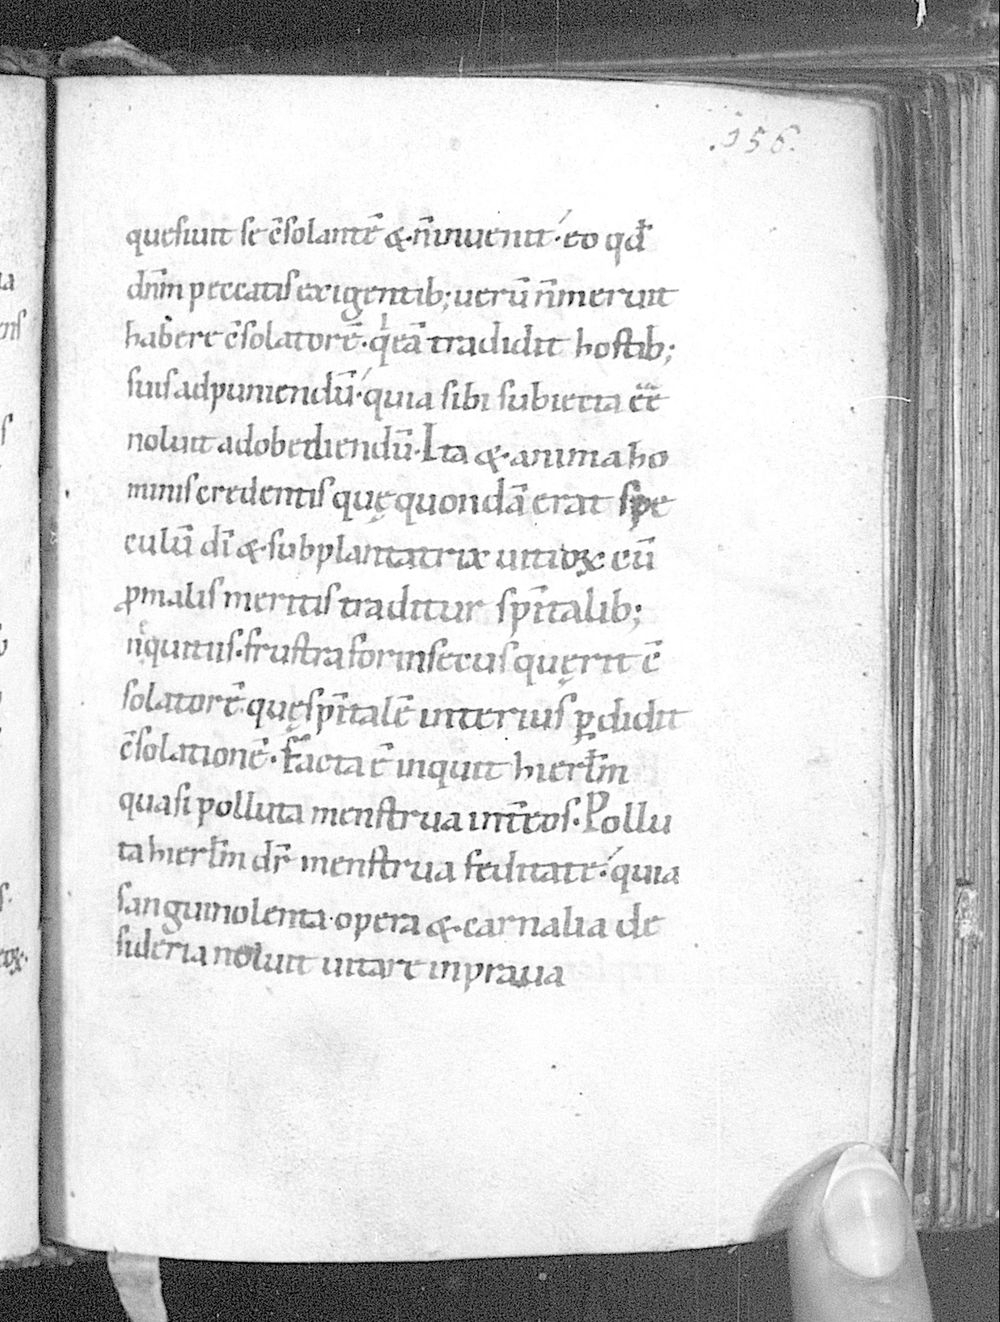 .156.
quesiuit se c̄solantē &·n̄inuenit· eo qđ
dn̄m peccatis exigentib; uerū n̄meruit
habere c̄solatorē· q̍ eā tradidit hostib;
suis adpuniendū· quia sibi subiecta eē̄
noluit adobediendū· Ita &·anima ho
minis credentis quę quondā erat spe
culū dī &·subplantatrix uitioꝝ cū
ꝓmalis meritis traditur sp̄italib;
neq̇uitiis· frustra forinsecus quęrit c̄
solatorē· quę sp̄italē interius ꝑdidit
c̄solationē· F̄acta ē inquit hierƚm
quasi polluta menstrua int̄ eos· Pollu
ta hierƚm dr̄ menstrua feditate· quia
sanguinolenta·opera &·carnalia de
sideria noluit uitare inpraua